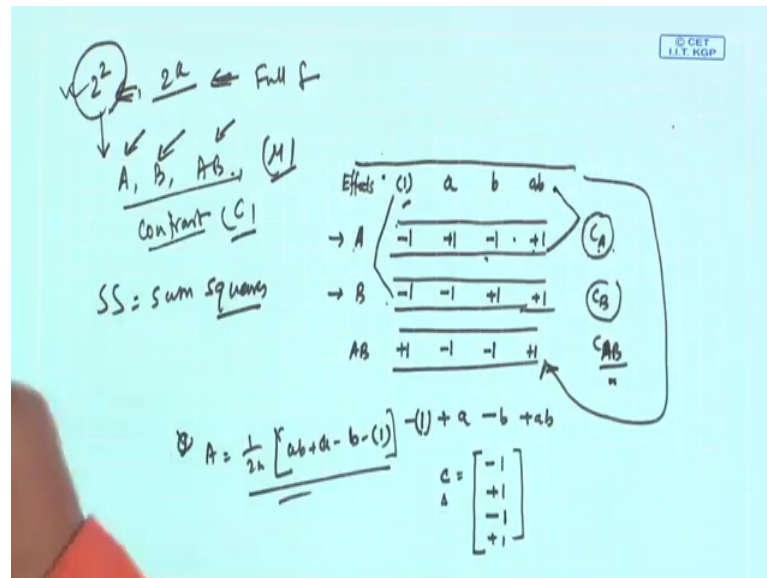 © CET
I.I.T. KGP
2² ← 2ᵏ ← Full f
A, B, AB, (M)
Contrast (C)
SS = Sum Squares
Effects (1) a b ab
→ A -1 +1 -1 +1 C_A
→ B -1 -1 +1 +1 C_B
AB +1 -1 -1 +1 C_AB
A = 1/2n [ab+a-b-(1)] -(1) + a - b + ab
C_A = [-1
+1
-1
+1]